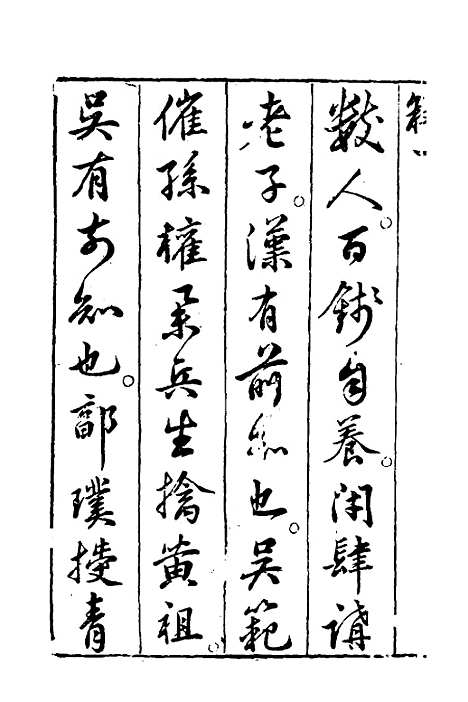 數人。百錢自養。閉肆講
老子。漢有前知也。吳範
催孫權羼兵生擒黃祖。
吳有前知也。郭璞授青